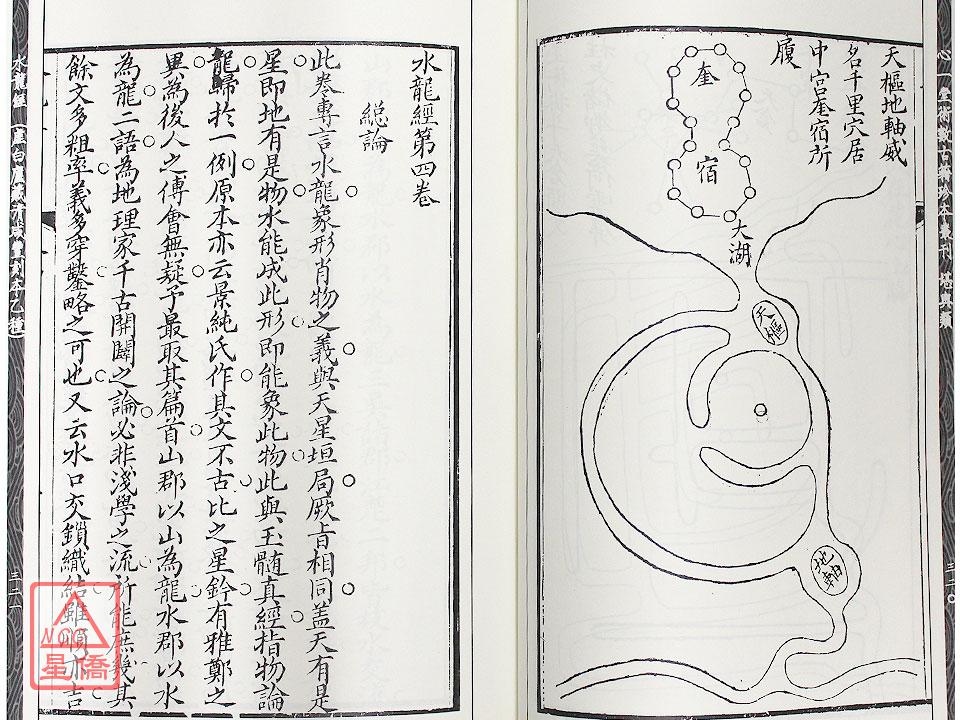 天樞地軸威
名千里穴居
中宮奎宿所
履
奎
宿
大湖
天樞
地軸
水龍經第四卷
總論
此卷專言水龍象形肖物之義與天星垣局厥旨相同盖天有是
星即地有是物水能成此形即能象此物此與玉髓真經指物論
龍歸於一例原本亦云景純氏作其文不古比之星鈐有雅鄭之
異為後人之傅會無疑予最取其篇首山郡以山為龍水郡以水
為龍二語為地理家千古開闢之論必非淺學之流所能庶幾其
餘文多粗率義多穿鑿略之可也又云水口交鎖織結雖順亦吉
水龍經
心一堂術數古籍珍本叢刊 堪輿類
NCC
星僑